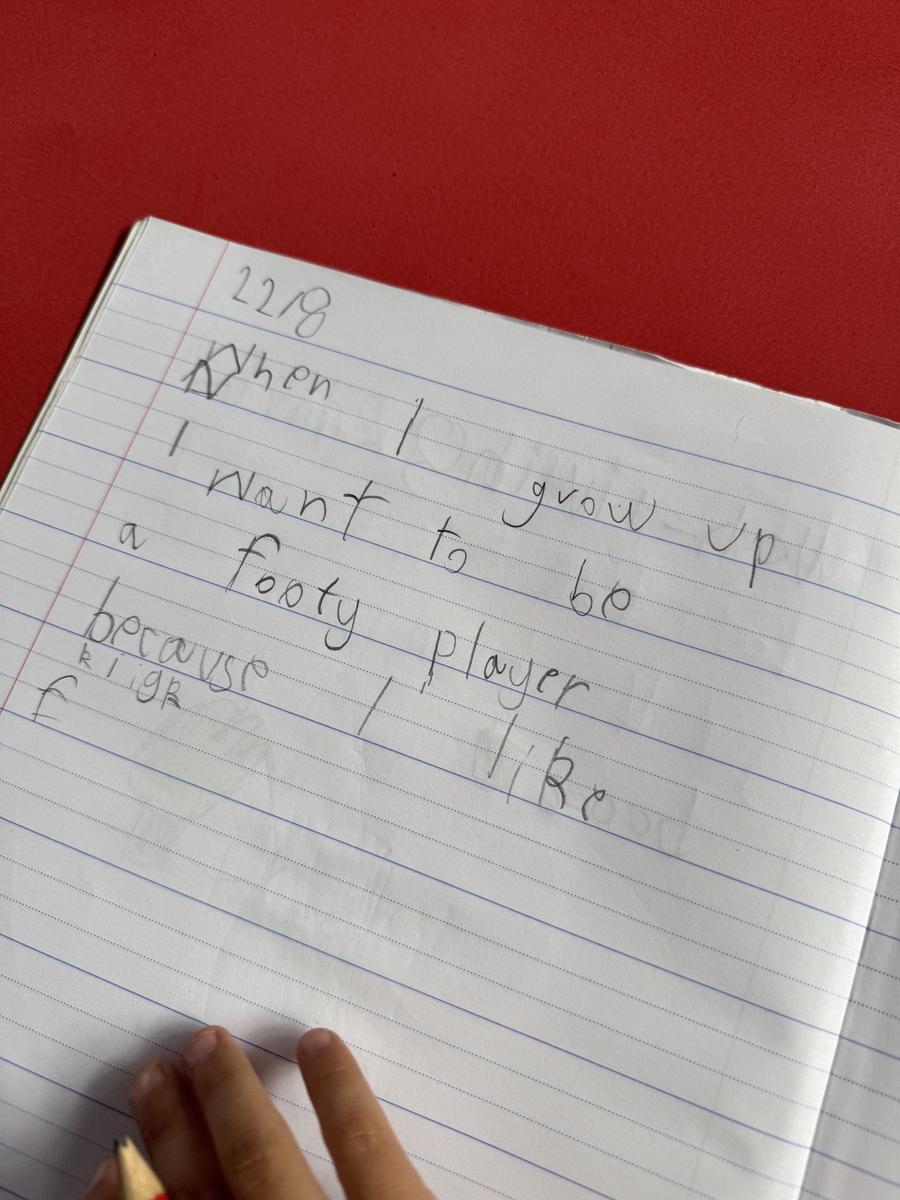 22/8
When I grow up
I want to be
a footy player
because I like
kigk
f